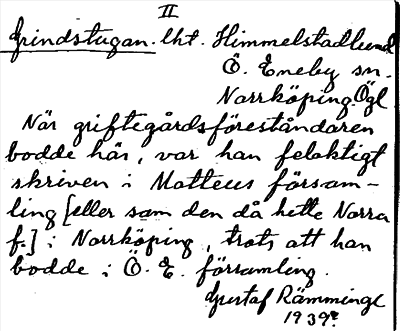 II
Grindstugan. lht. Himmelstadlund
Ö. Eneby sn.
Norrköping. Ögl
När griftegårdsföreståndaren
bodde här, var han felaktigt
skriven i Matteus försam-
ling [eller som den då hette Norra
f.] i Norrköping, trots att han
bodde i Ö. E. församling.
Gustaf Rämminge
1939.